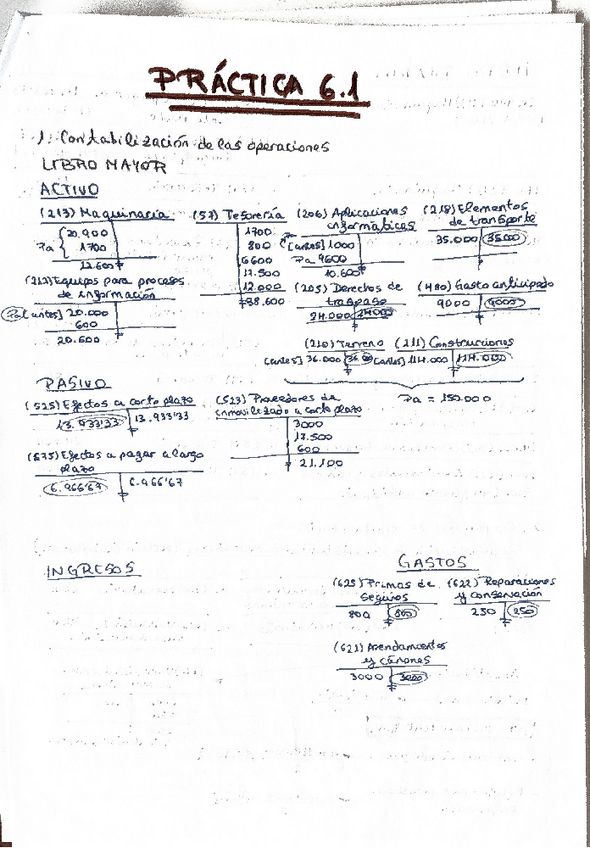 PRÁCTICA 6.1
1. Contabilización de las operaciones
LIBRO MAYOR
ACTIVO
(213) Maquinaria
Pa { 20.900
1700
12.600
(57) Tesorería
1700
800
6600
12.500
12.000
88.600
(206) Aplicaciones
informáticas
[antes] 1000
Pa 9600
10.600
(218) Elementos
de transporte
35.000 35.000
(217) Equipos para procesos
de información
Pa [antes] 20.000
600
20.600
(205) Derechos de
traspaso
24.000 24000
(480) Gasto anticipado
9000 9000
(210) Terreno
[antes] 36.000 36.000
(211) Construcciones
[antes] 114.000 114.000
Pa = 150.000
PASIVO
(525) Efectos a corto plazo
13.933'33 13.933'33
(523) Proveedores de
inmovilizado a corto plazo
3000
17.500
600
21.100
(175) Efectos a pagar a largo
plazo
6.966'67 6.966'67
INGRESOS
GASTOS
(625) Primas de
seguros
800 800
(622) Reparaciones
y conservación
250 250
(621) Arrendamientos
y cánones
3000 3000